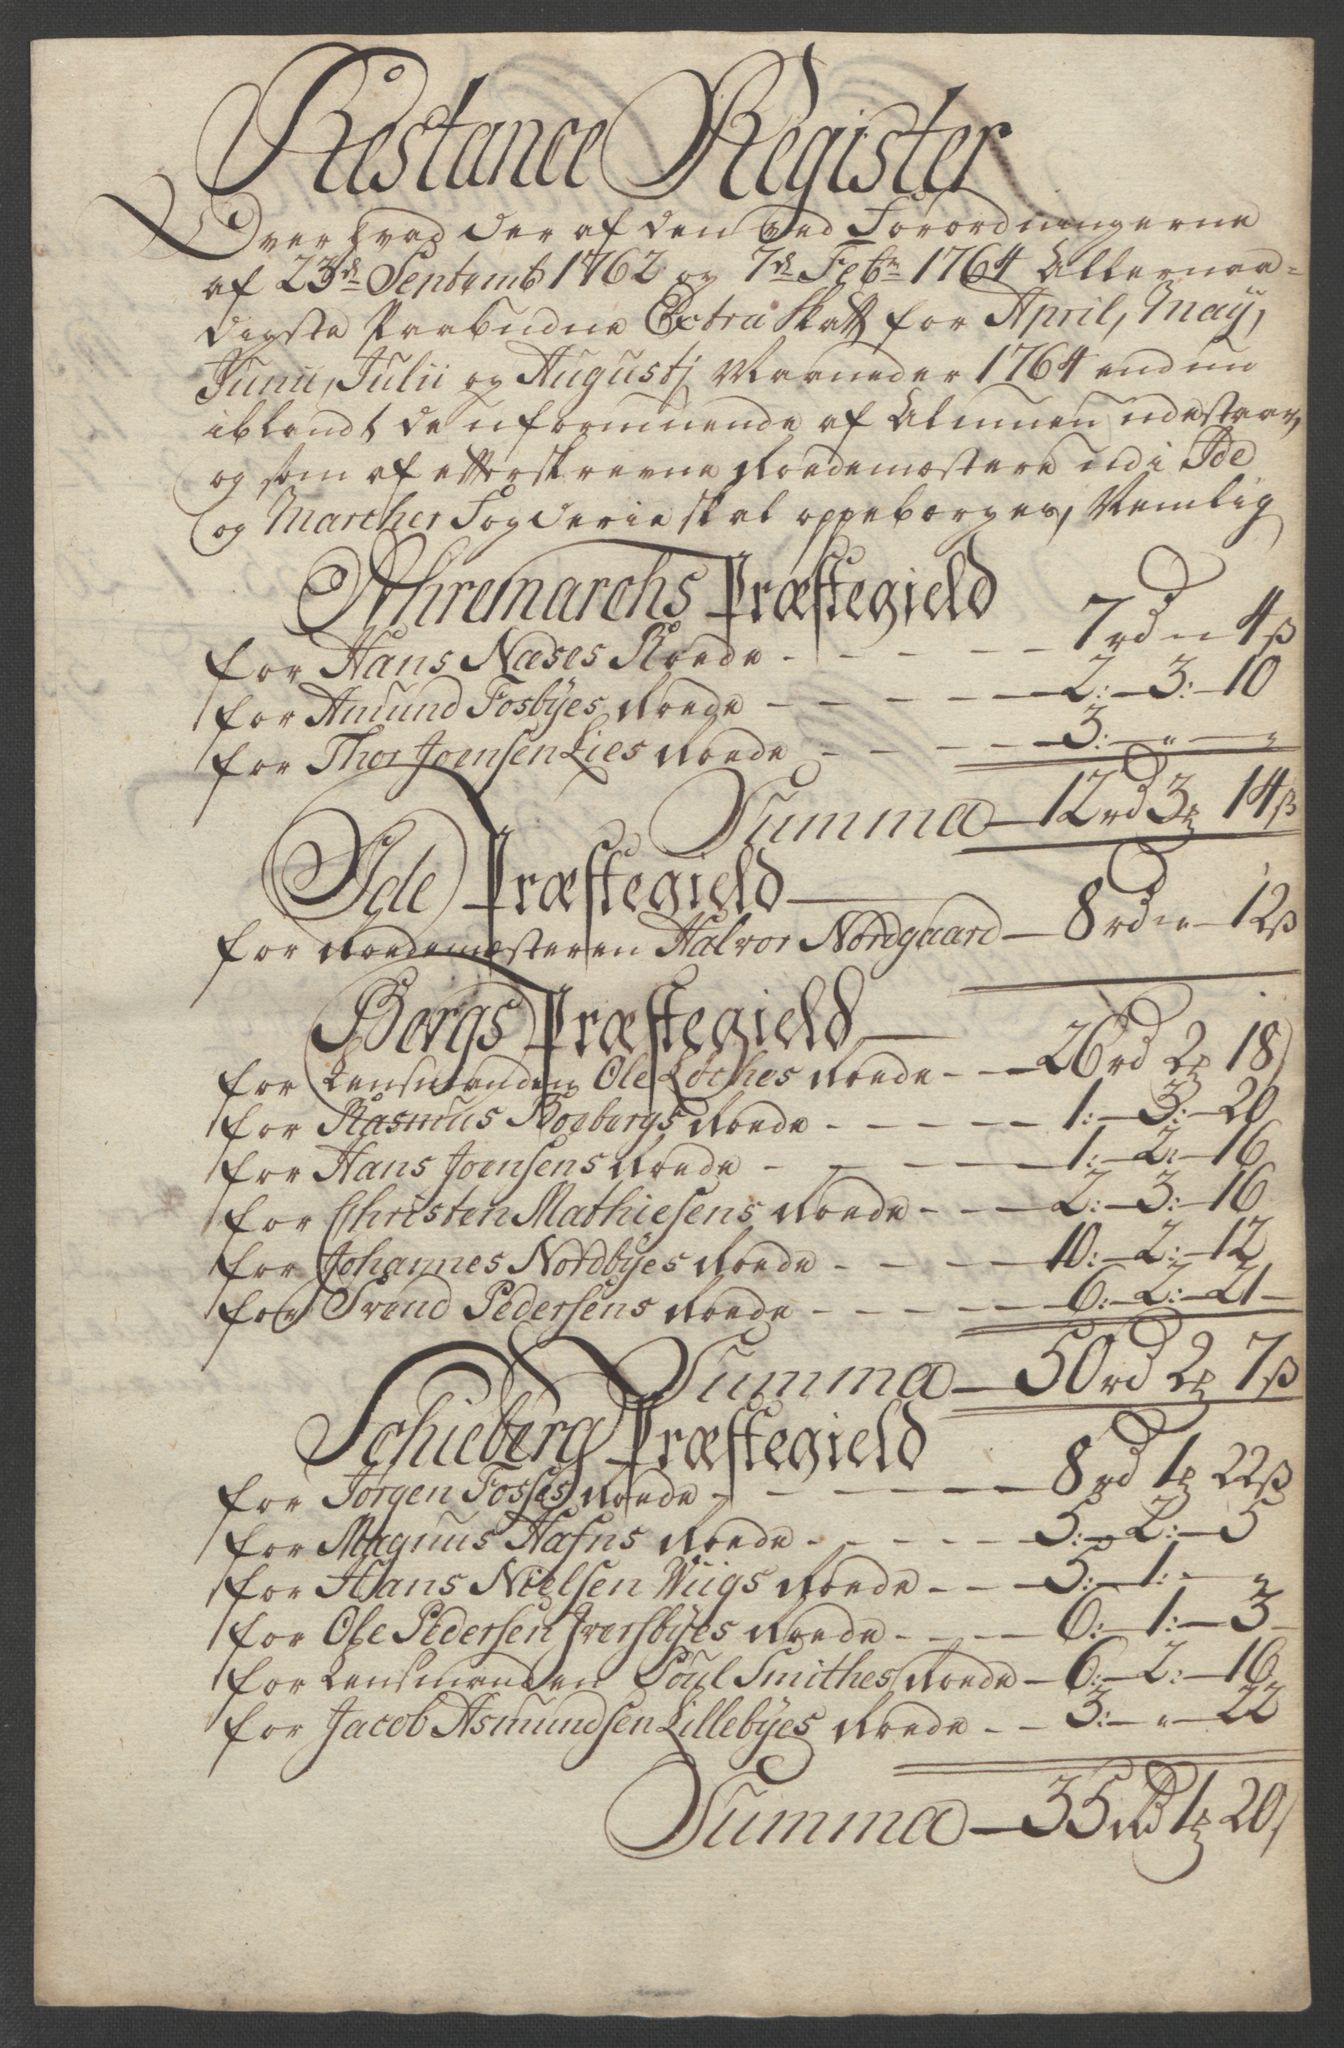 Restance Register
Over hvad der af den ved Forordningerne
af 23de Septemb 1762 og 7de Febr 1764 Allernaa=
digste Paabudne Extra Skatt for April, May,
Junii, Julii og Augustj Maaneder 1764 endnu
iblandt de uformuende af Almuen udestaar,
og som af efterskrevne Roedemæstere udi Ide
og Marcher Fogderie skal oppebærges, Nemlig
Øhremarchs Præstegield
for Hans Næses Roede - - - - - 7rd " 4ß
for Amund Fosbyes Roede - - - - 2:-3:-10
for Thor Joensen Lies Roede - - - - 3:-"-"
Summa - 12rd 3 14ß
Ide Præstegield
for Roedemæsteren Halvor Nordgaard - 8rd " 12ß
Bergs Præstegield
for Lensmanden Ole Løches Roede - - 26rd 2 18
for Rasmus Boebergs Roede - - - - - 1:-3:-20
for Hans Joensens Roede - - - - 1:-2:-16
for Christen Mathiesens Roede - - - 2:-3:-16
for Johannes Nordbyes Roede - - - - 10:-2:-12
for Svend Pedersens Roede - - - - - 6:-2:-21-
Summa - 50rd 2 7ß
Schieberg Præstegield
for Jørgen Fosses Roede - - - - - 8rd 1 22ß
for Magnus Hafns Roede - - - - - 5:-2:-5
for Hans Nielsen Viigs Roede - - - 5:-1:-"
for Ole Pedersen Iversbyes Roede - - - 6:-1:-3-
for Lensmanden Poul Smithes Roede - 6:-2:-16
for Jacob Asmundsen Lillebyes Roede - - 3:-"-22
Summa - 35rd 1 20